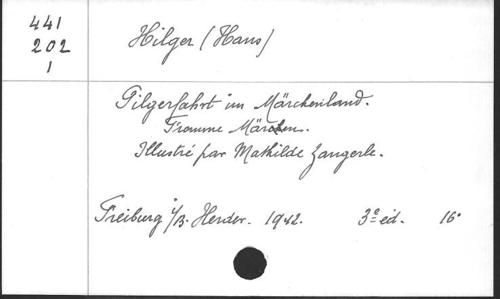 441
202
1
Hilger (Hans)
Pilgerfahrt im Märchenland.
Fromme Märchen.
Illustré par Mathilde Zangerle.
Freiburg i/B. Herder. 1942. 3e éd. 16°